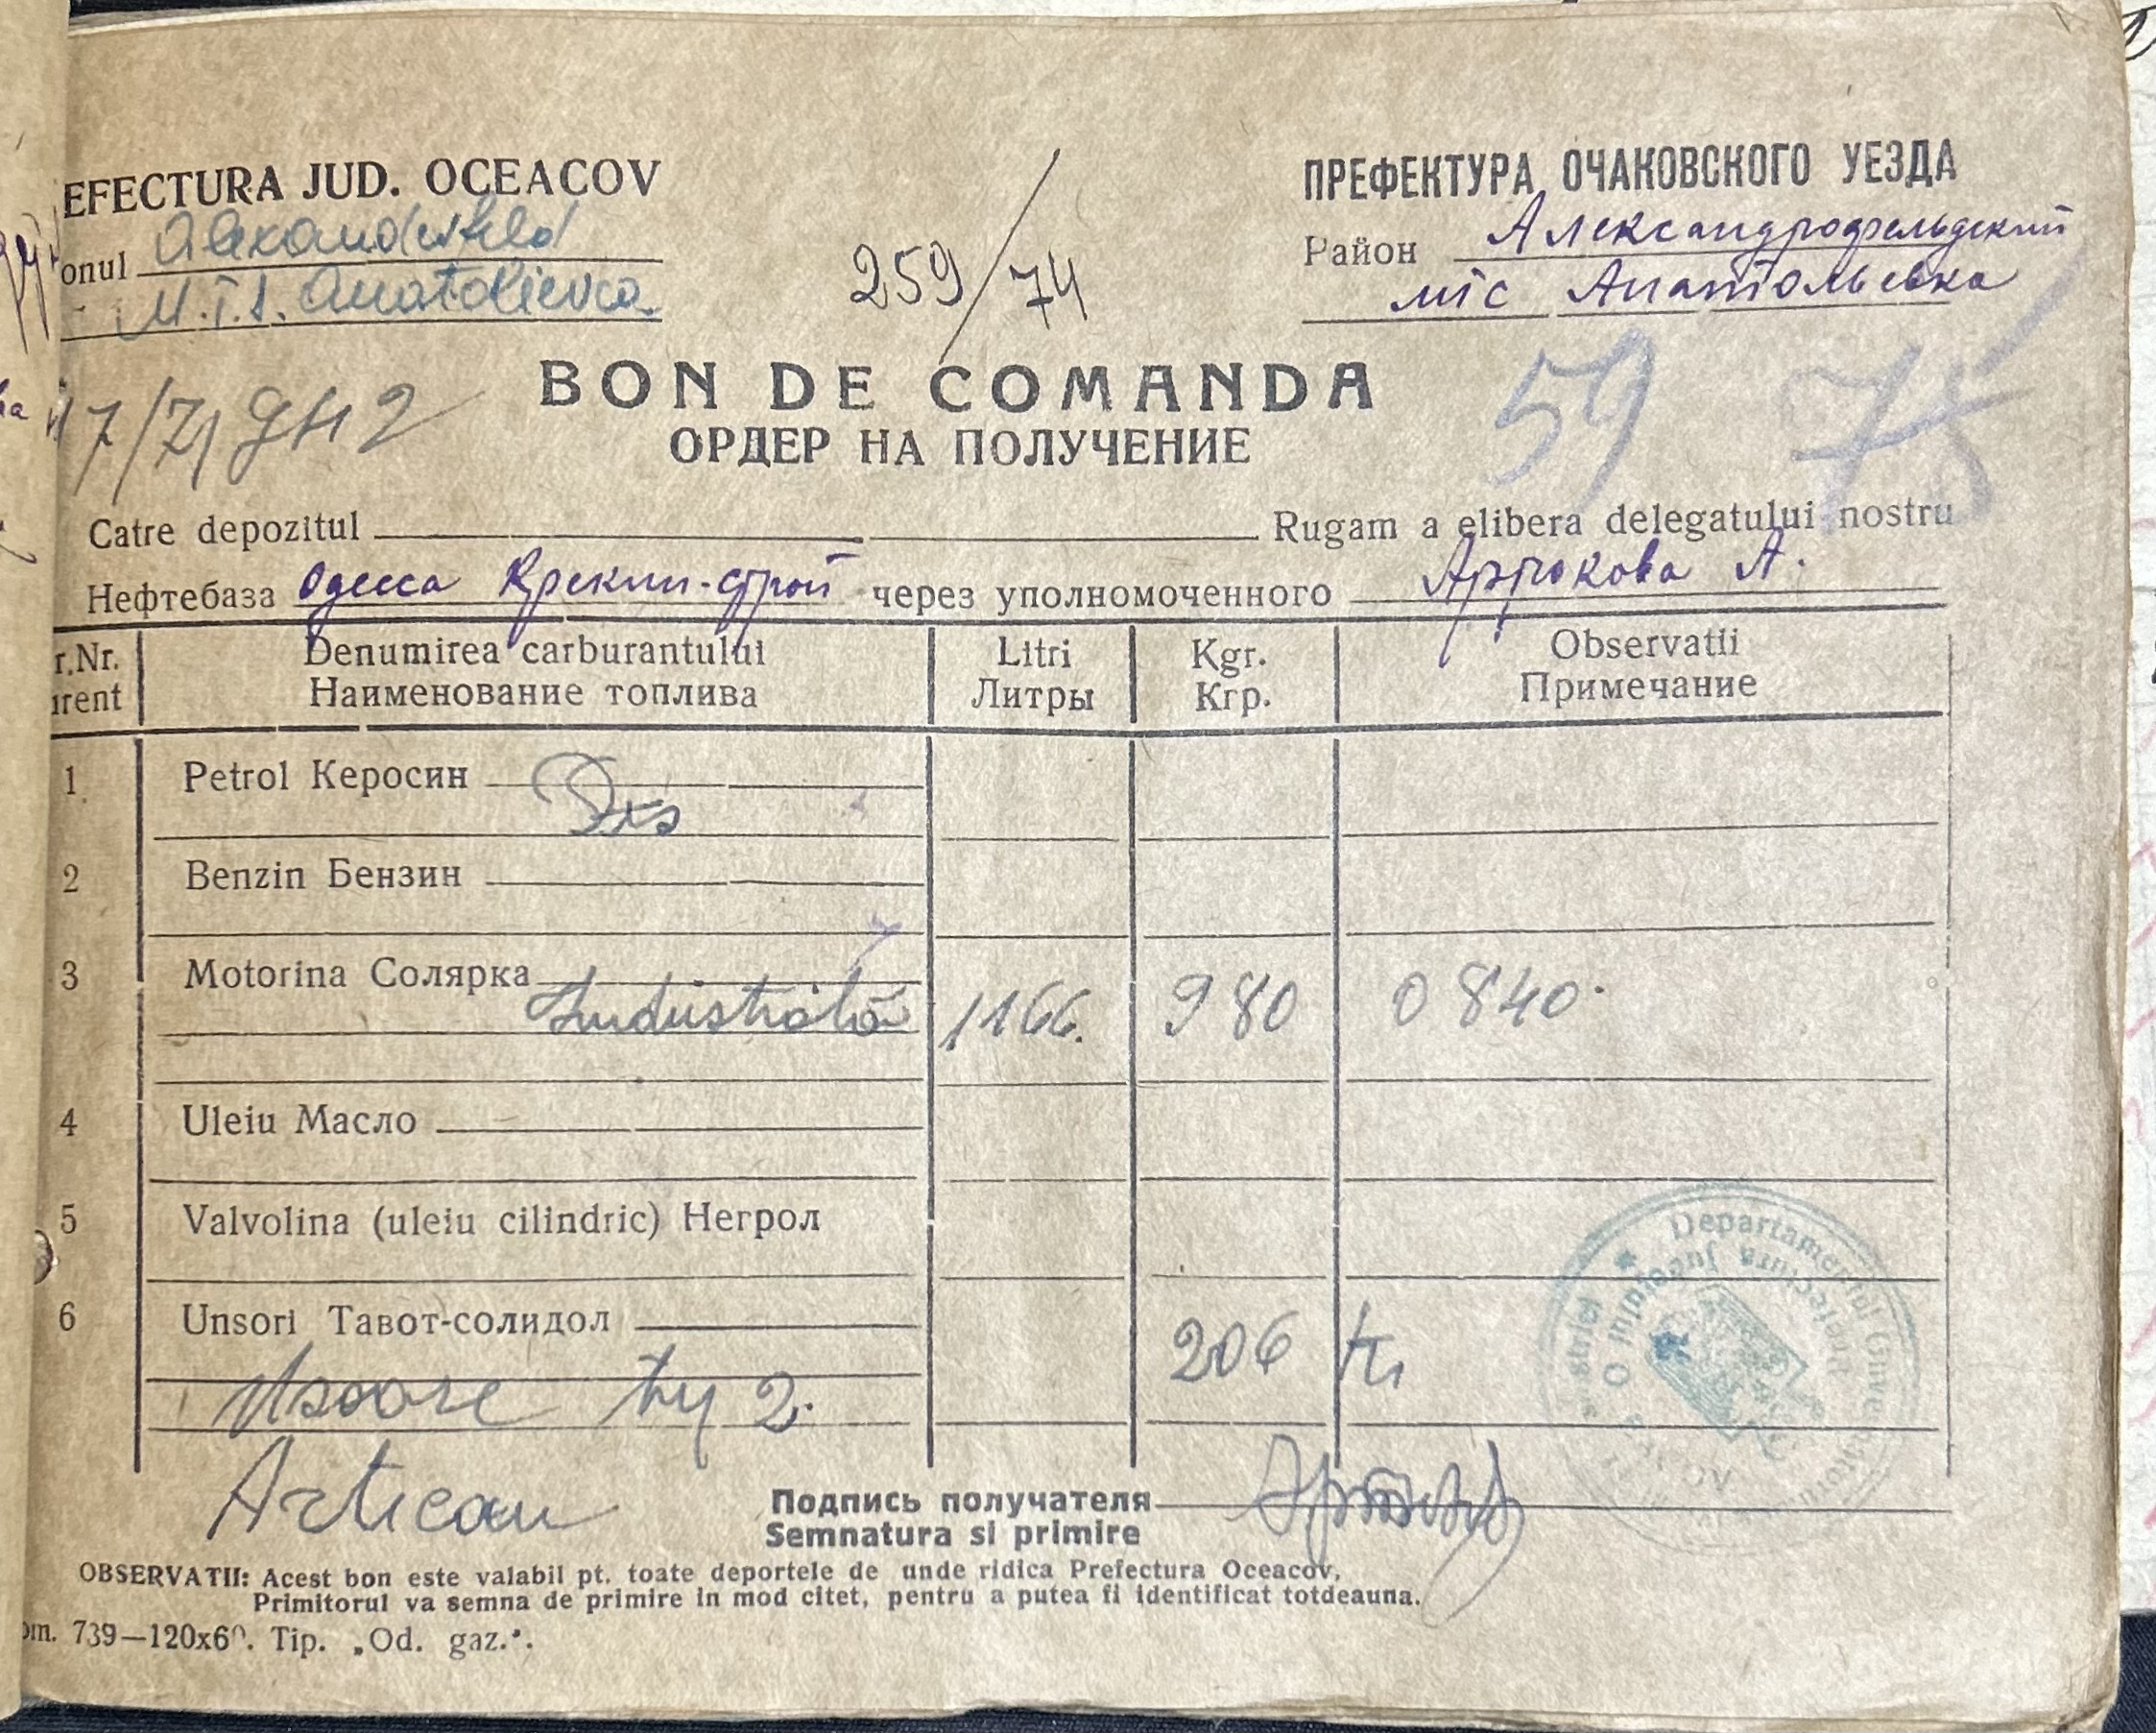 EFECTURA JUD. OCEACOV
ПРЕФЕКТУРА ОЧАКОВСКОГО УЕЗДА
onul Alexanderfeld
Район Александрофельдский
M.T.S. Anatolievca
мтс Анатольевка
259/74
BON DE COMANDA
59
ОРДЕР НА ПОЛУЧЕНИЕ
Catre depozitul Rugam a elibera delegatului nostru
Нефтебаза Одесса Крекин-строй через уполномоченного Артюкова А.
r.Nr. Denumirea carburantului Litri Kgr. Observatii
urent Наименование топлива Литры Кгр. Примечание
1 Petrol Керосин
2 Benzin Бензин
3 Motorina Солярка
Industrială 1166. 980 0840.
4 Uleiu Масло
5 Valvolina (uleiu cilindric) Негрол
6 Unsori Тавот-солидол
206
2.
Подпись получателя
Semnatura si primire
OBSERVATII: Acest bon este valabil pt. toate deportele de unde ridica Prefectura Oceacov,
Primitorul va semna de primire in mod citet, pentru a putea fi identificat totdeauna.
om. 739—120x60. Tip. „Od. gaz.".
Departamentul